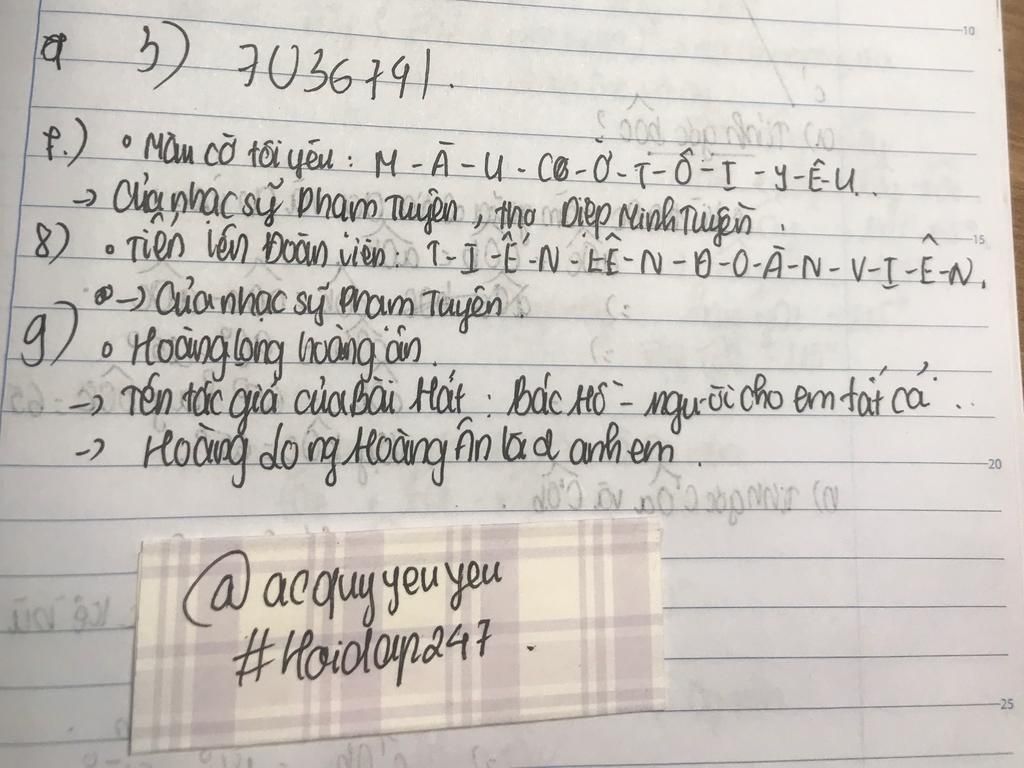 a 3) 7036791.
7.) • Màu cờ tôi yêu: M - À - U - C - Ờ - T - Ô - I - Y - Ê - U..
→ Của nhạc sỹ Phạm Tuyên, thơ Diệp Minh Tuyền.
8) • Tiến lên Đoàn viên: T - I - Ế - N - LÊ - N - Đ - O - À - N - V - I - Ê - N.
→ Của nhạc sỹ Phạm Tuyên.
9) • Hoàng long hoàng ân.
→ Tên tác giả của Bài Hát: Bác Hồ - người cho em tất cả..
→ Hoàng long Hoàng Ân là 2 anh em.
@acquyyeuyeu
#Hoidap247.
10
15
20
25